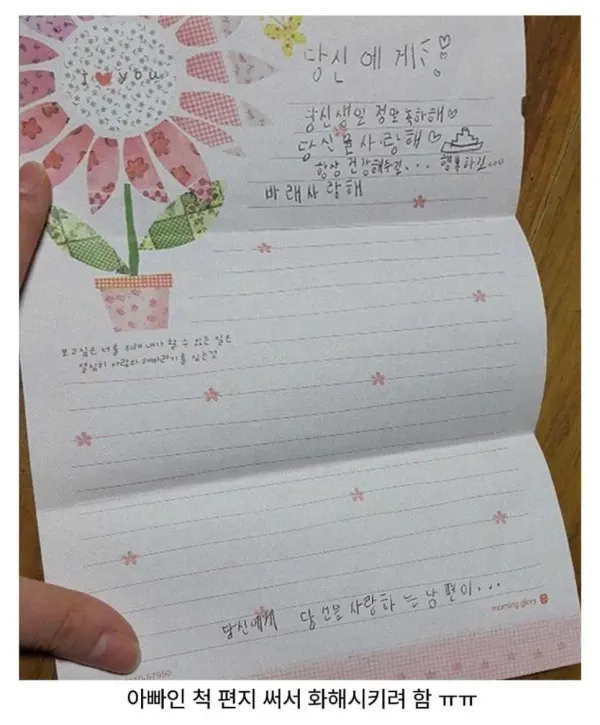 I ♥ you
당신에게
당신생일 정말 축하해♡
당신을사랑해♡
항상 건강해주길... 행복하길...
바래사랑해
보고싶은 너를 위해 내가 할 수 있는 일은
열심히 사랑의 해바라기를 심는것
당신에게 당신을사랑하는남편이...
morning glory
아빠인 척 편지 써서 화해시키려 함 ㅠㅠ